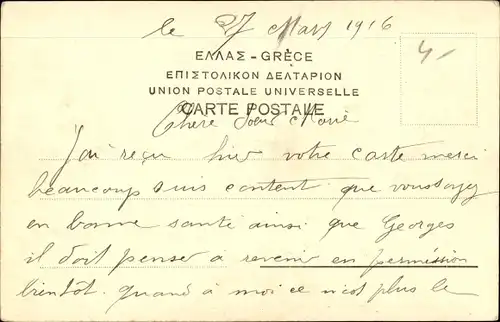 le 27 Mars 1916
4-
ΕΛΛΑΣ - GRÈCE
ΕΠΙΣΤΟΛΙΚΟΝ ΔΕΛΤΑΡΙΟΝ
UNION POSTALE UNIVERSELLE
CARTE POSTALE
Chère Sœur Marie
J'ai reçu hier votre carte merci
beaucoup suis content que vous soyez
en bonne santé ainsi que Georges
il doit penser à revenir en permission
bientôt. quand à moi ce n'est plus le